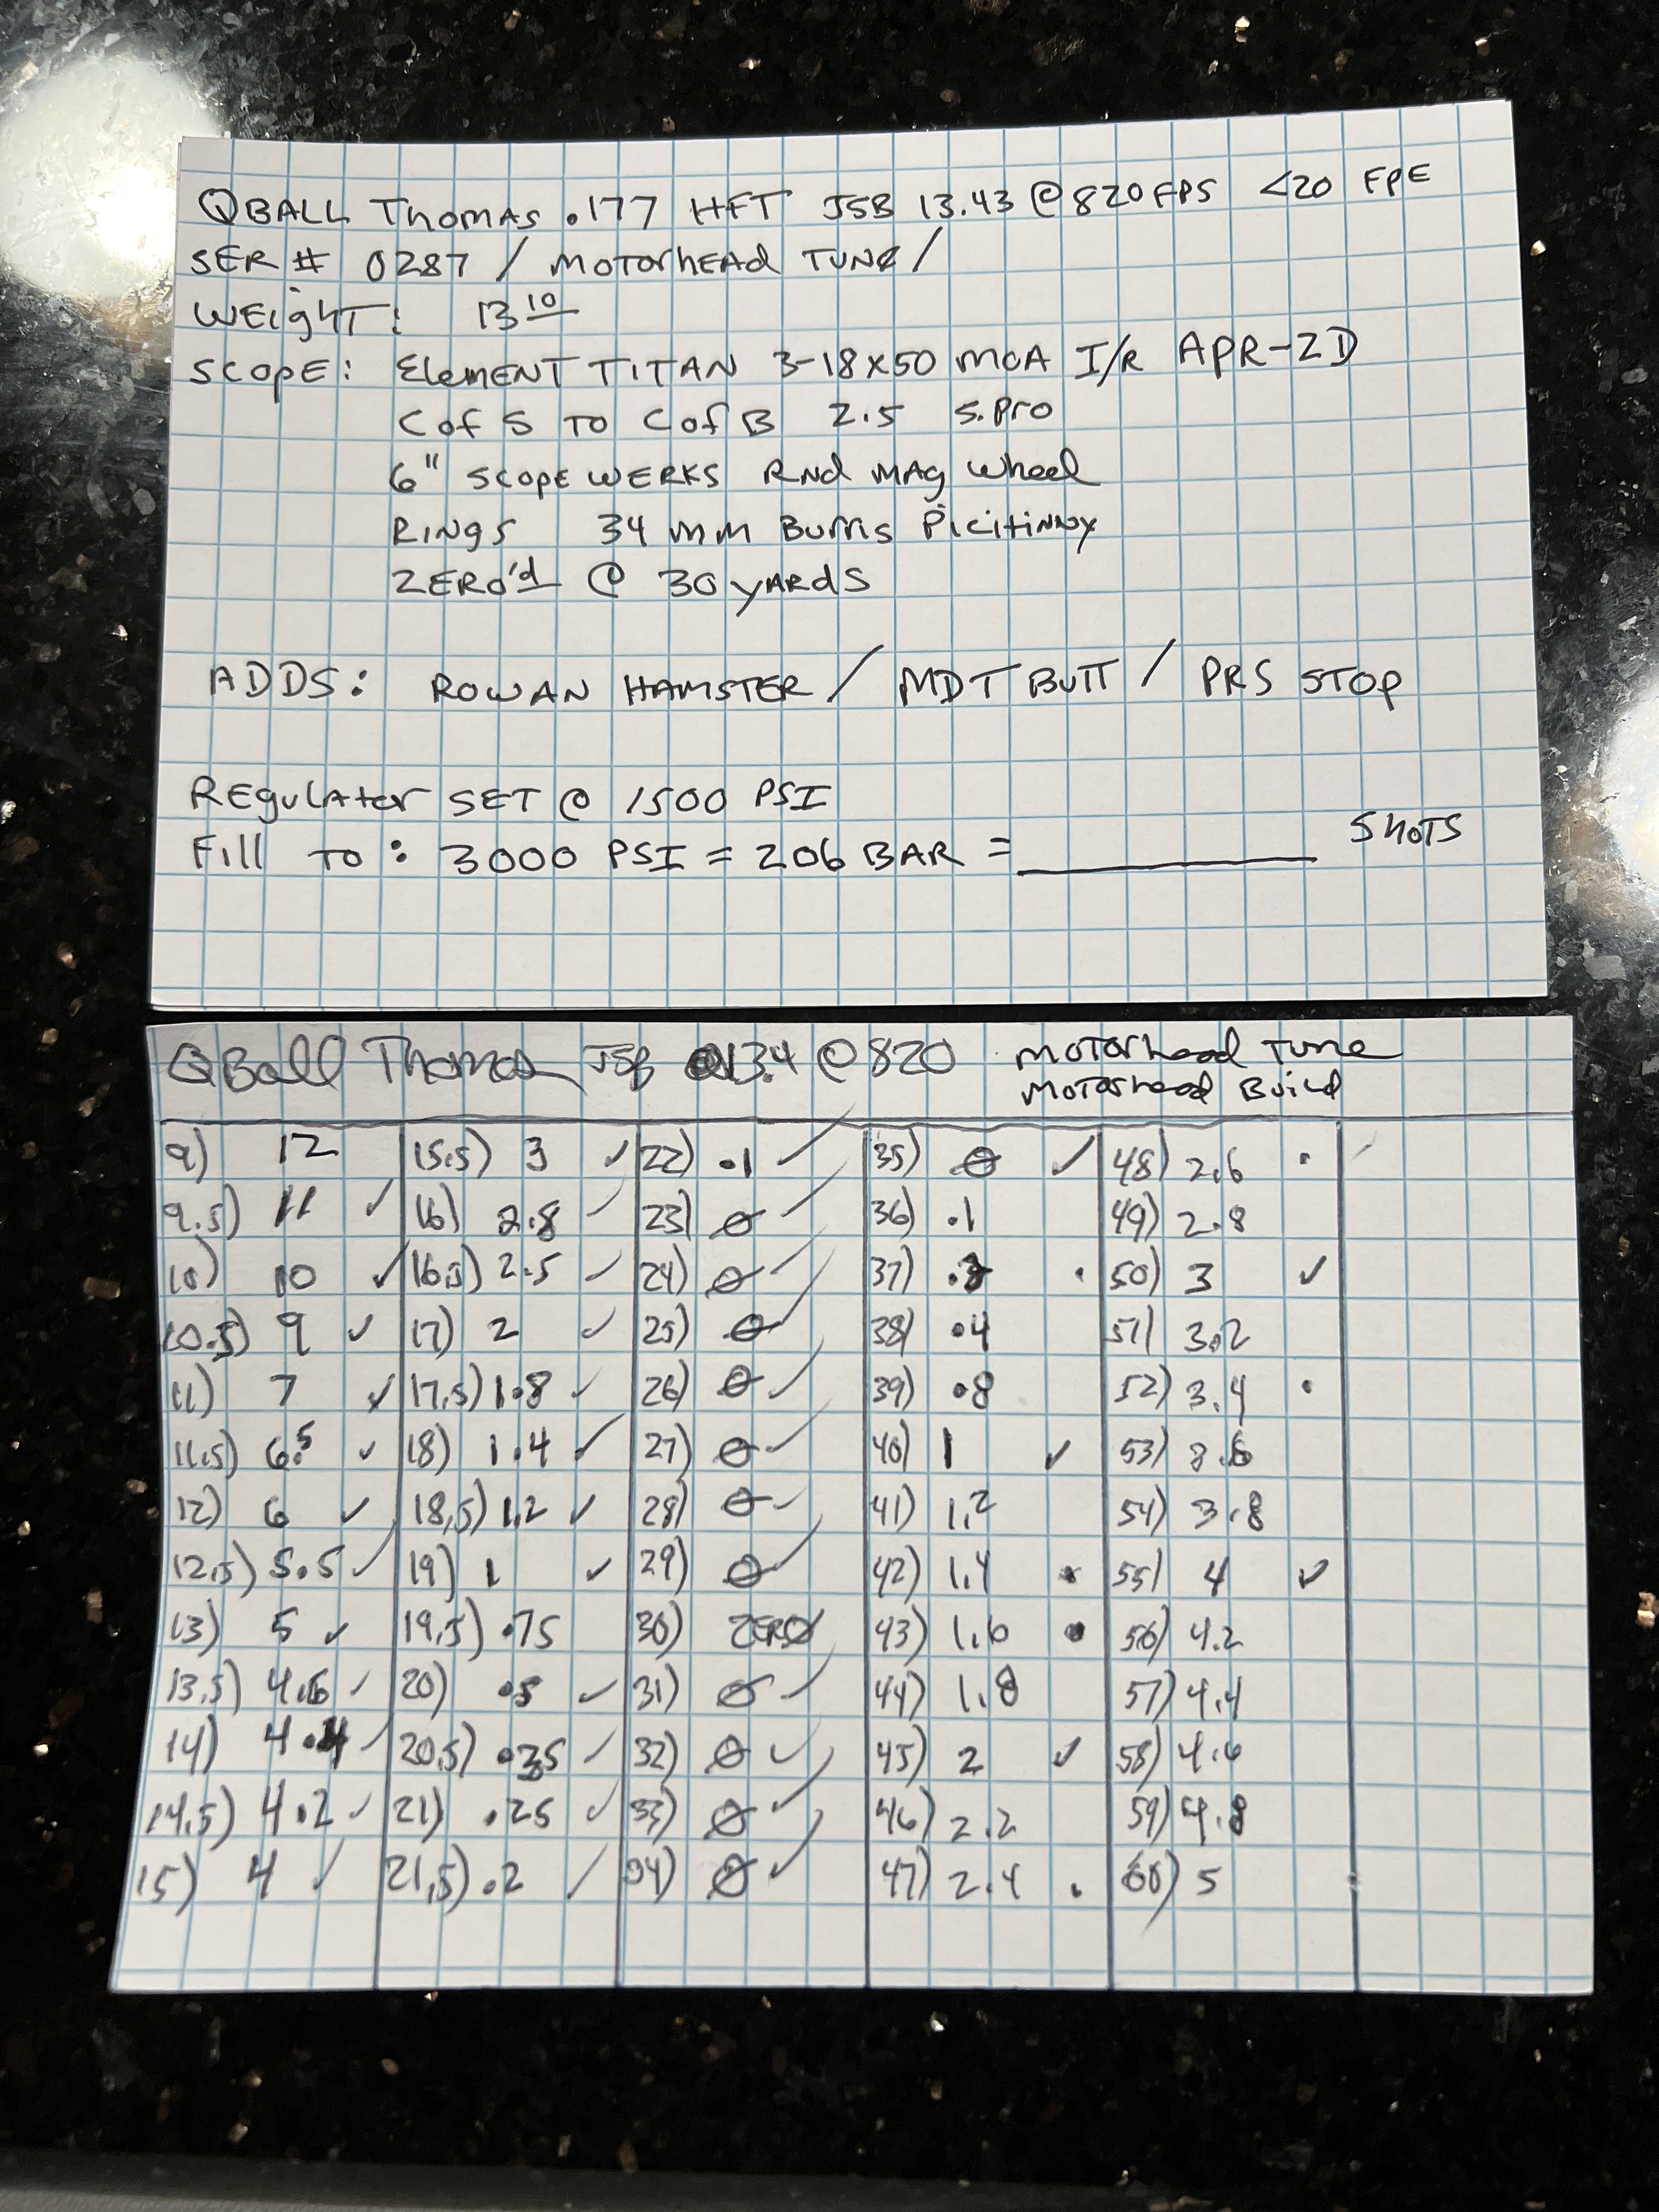 QBALL Thomas .177 HFT JSB 13.43 @ 820 FPS <20 FPE
SER # 0287 / MOTORhEAd TUNE /
WEIghT: 13 10
SCOPE: ElemENT TITAN 3-18x50 MOA I/R APR-2D
C of S TO C of B 2.5 S.Pro
6" SCOPE WERKS RNd MAg Wheel
RINgS 34 mm Burris Picitinny
ZERO'd @ 30 yARdS
ADDS: ROWAN HAMSTER / MDT BUTT / PRS STOp
REgulAter SET @ 1500 PSI
Fill TO: 3000 PSI = 206 BAR = ________ ShoTS
QBall Thomas JSB 13.4 @ 820 MOTOrhead Tune
MOTOrhead Build
9) 12
9.5) 11 ✓
10) 10 ✓
10.5) 9 ✓
11) 7 ✓
11.5) 6.5 ✓
12) 6 ✓
12.5) 5.5 ✓
13) 5 ✓
13.5) 4.6 ✓
14) 4.4 ✓
14.5) 4.2 ✓
15) 4 ✓
15.5) 3 ✓
16) 2.8 ✓
16.5) 2.5 ✓
17) 2 ✓
17.5) 1.8 ✓
18) 1.4 ✓
18.5) 1.2 ✓
19) 1 ✓
19.5) .75
20) .5 ✓
20.5) .35 ✓
21) .25 ✓
21.5) .2 ✓
22) .1 ✓
23) 0 ✓
24) 0 ✓
25) 0 ✓
26) 0 ✓
27) 0 ✓
28) 0 ✓
29) 0 ✓
30) ZERO
31) 0 ✓
32) 0 ✓
33) 0 ✓
34) 0 ✓
35) 0 ✓
36) .1
37)
38) .4
39) .8
40) 1 ✓
41) 1.2
42) 1.4
43) 1.6
44) 1.8
45) 2 ✓
46) 2.2
47) 2.4
48) 2.6
49) 2.8
50) 3 ✓
51) 3.2
52) 3.4
53) 3.6
54) 3.8
55) 4 ✓
56) 4.2
57) 4.4
58) 4.6
59) 4.8
60) 5